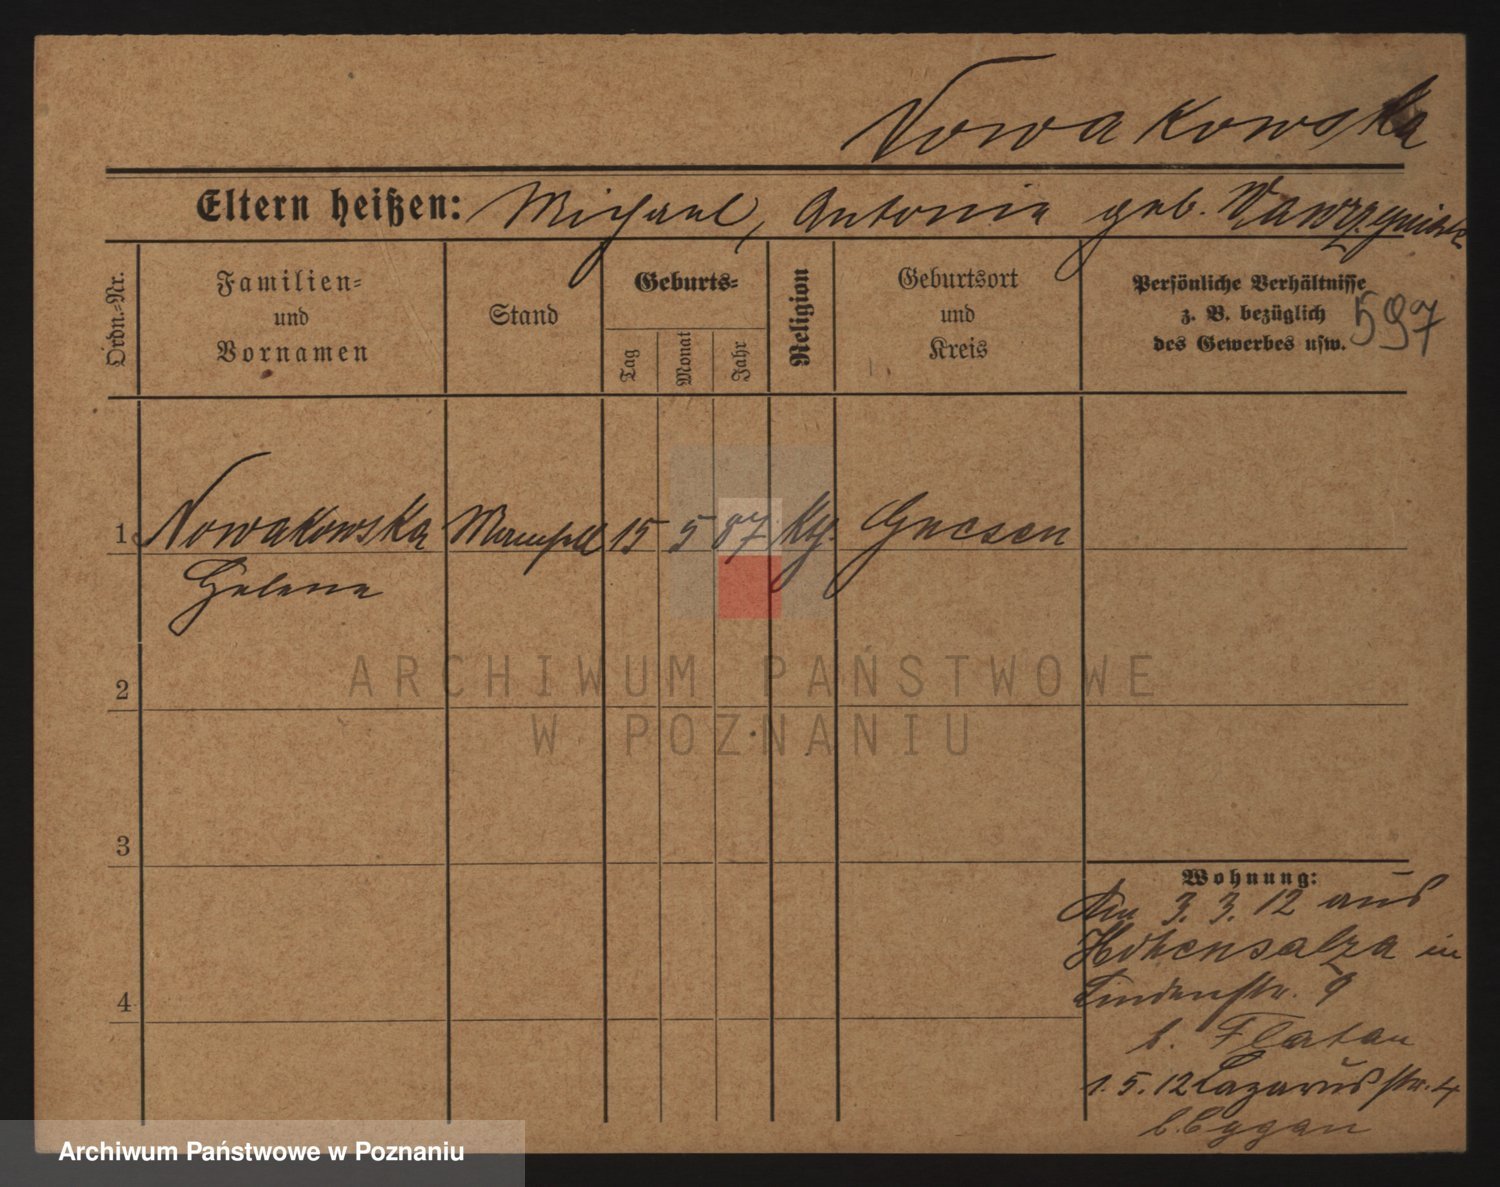 Nowakowska
Eltern heißen: Michael, Antonie geb. Wawrzyniak
Ordn.-Nr.
Familien-
und
Vornamen
Stand
Geburts-
Tag
Monat
Jahr
Religion
Geburtsort
und
Kreis
Persönliche Verhältnisse
z. B. bezüglich
des Gewerbes usw.
597
1 Nowakowska Mamsell 15 5 87 kth. Gnesen
Helene
2
3
4
Wohnung:
Am 3. 3. 12 aus
Hohensalza in
Lindenstr. 9
b. Flatau
1. 5. 12 Lazarus str. 4
b.
ARCHIWUM PAŃSTWOWE
W POZNANIU
Archiwum Państwowe w Poznaniu